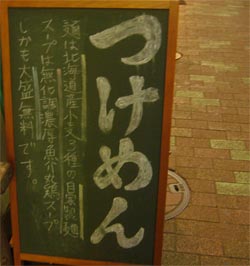 つけめん
麺は北海道産小麦3種の自家製麺
スープは無化調濃厚魚介丸鶏スープ
しかも大盛無料です。